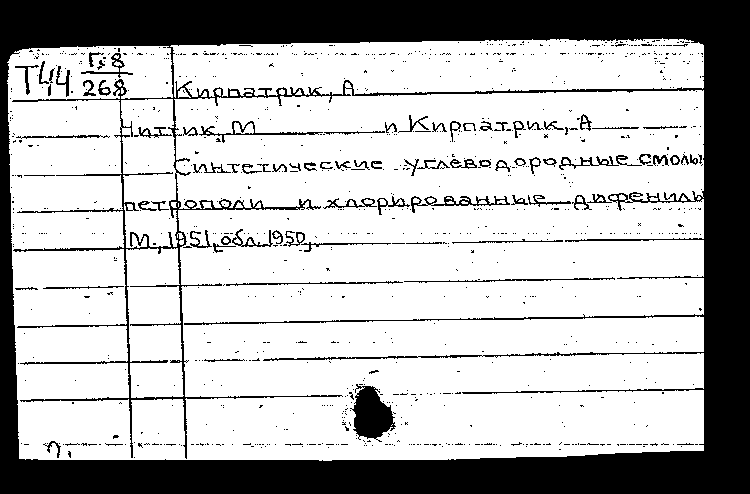 Т44 Г,8
268
Кирпатрик, А
Читтик, М и Кирпатрик, А
Синтетические углеводородные смолы
петрополи и хлорированные дифенилы
М., 1951, обл. 1950,